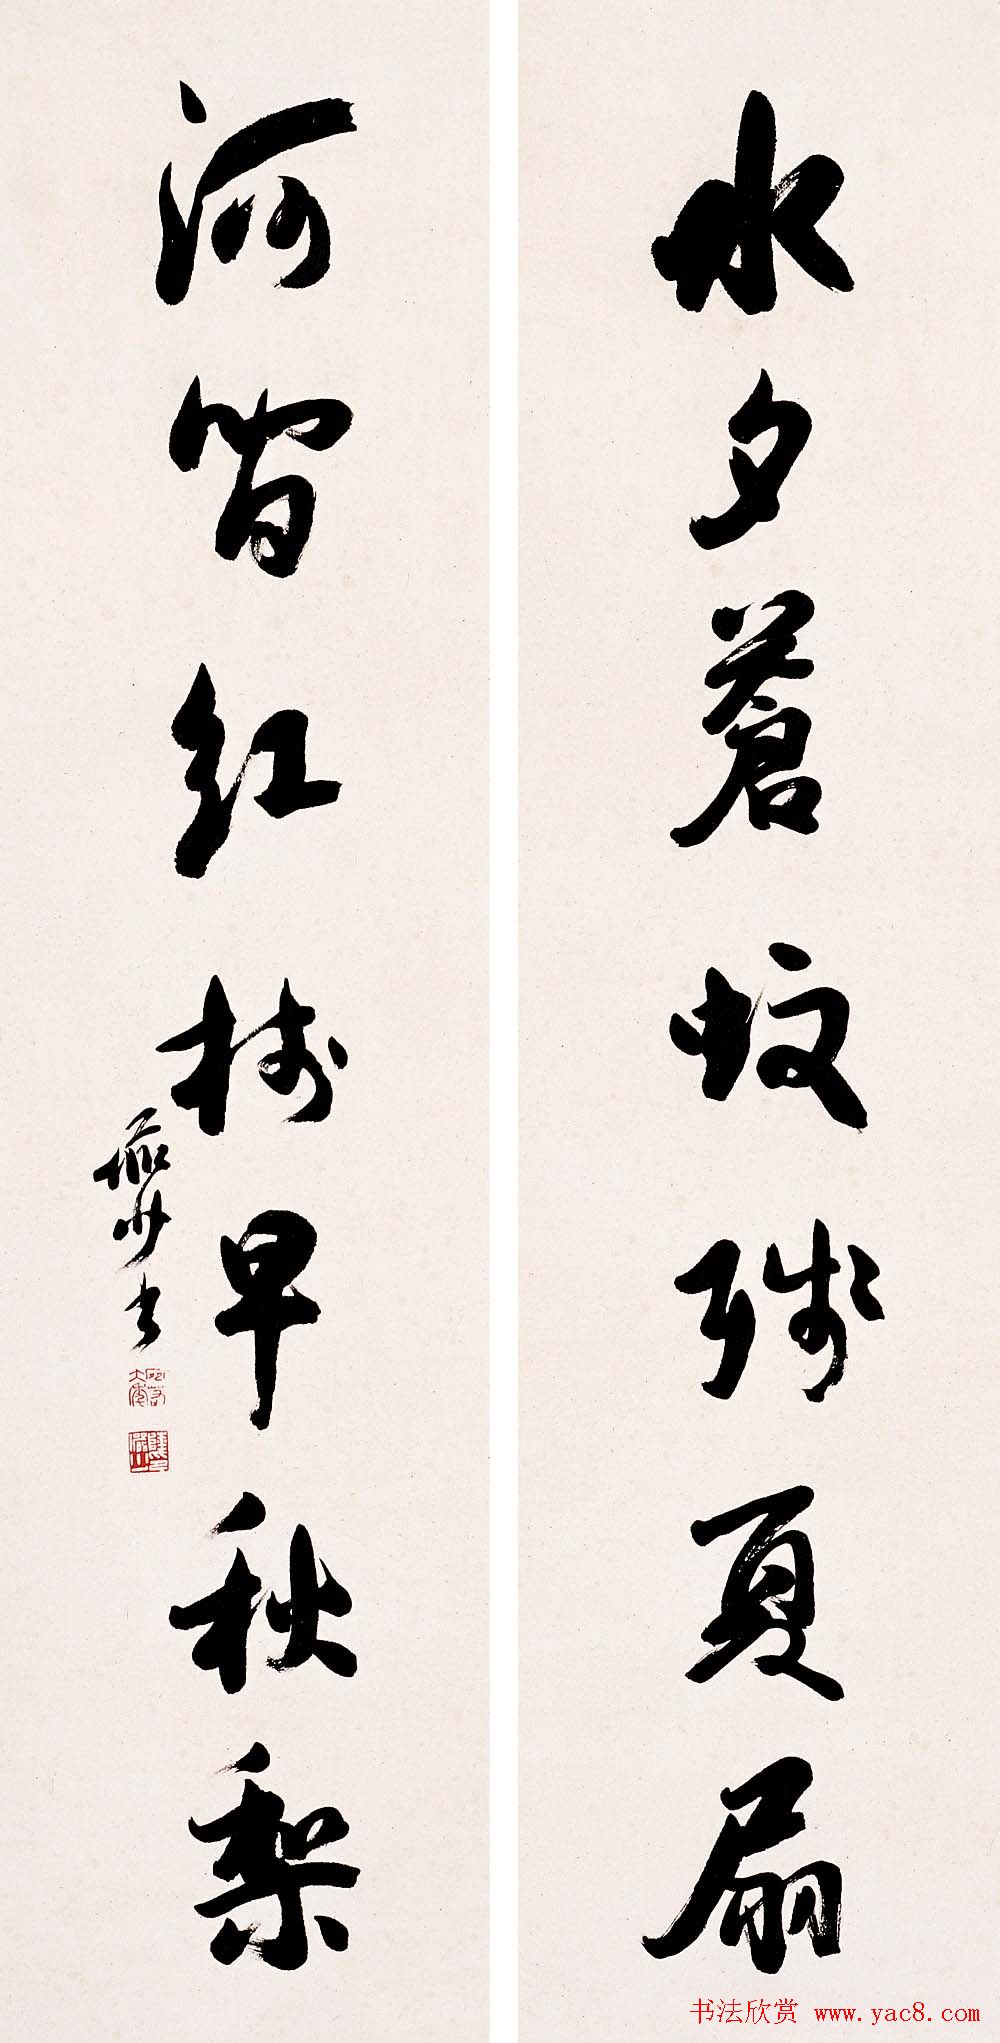 水夕蒼蚊殘夏扇
河間紅樹早秋梨
书法欣赏 www.yac8.com